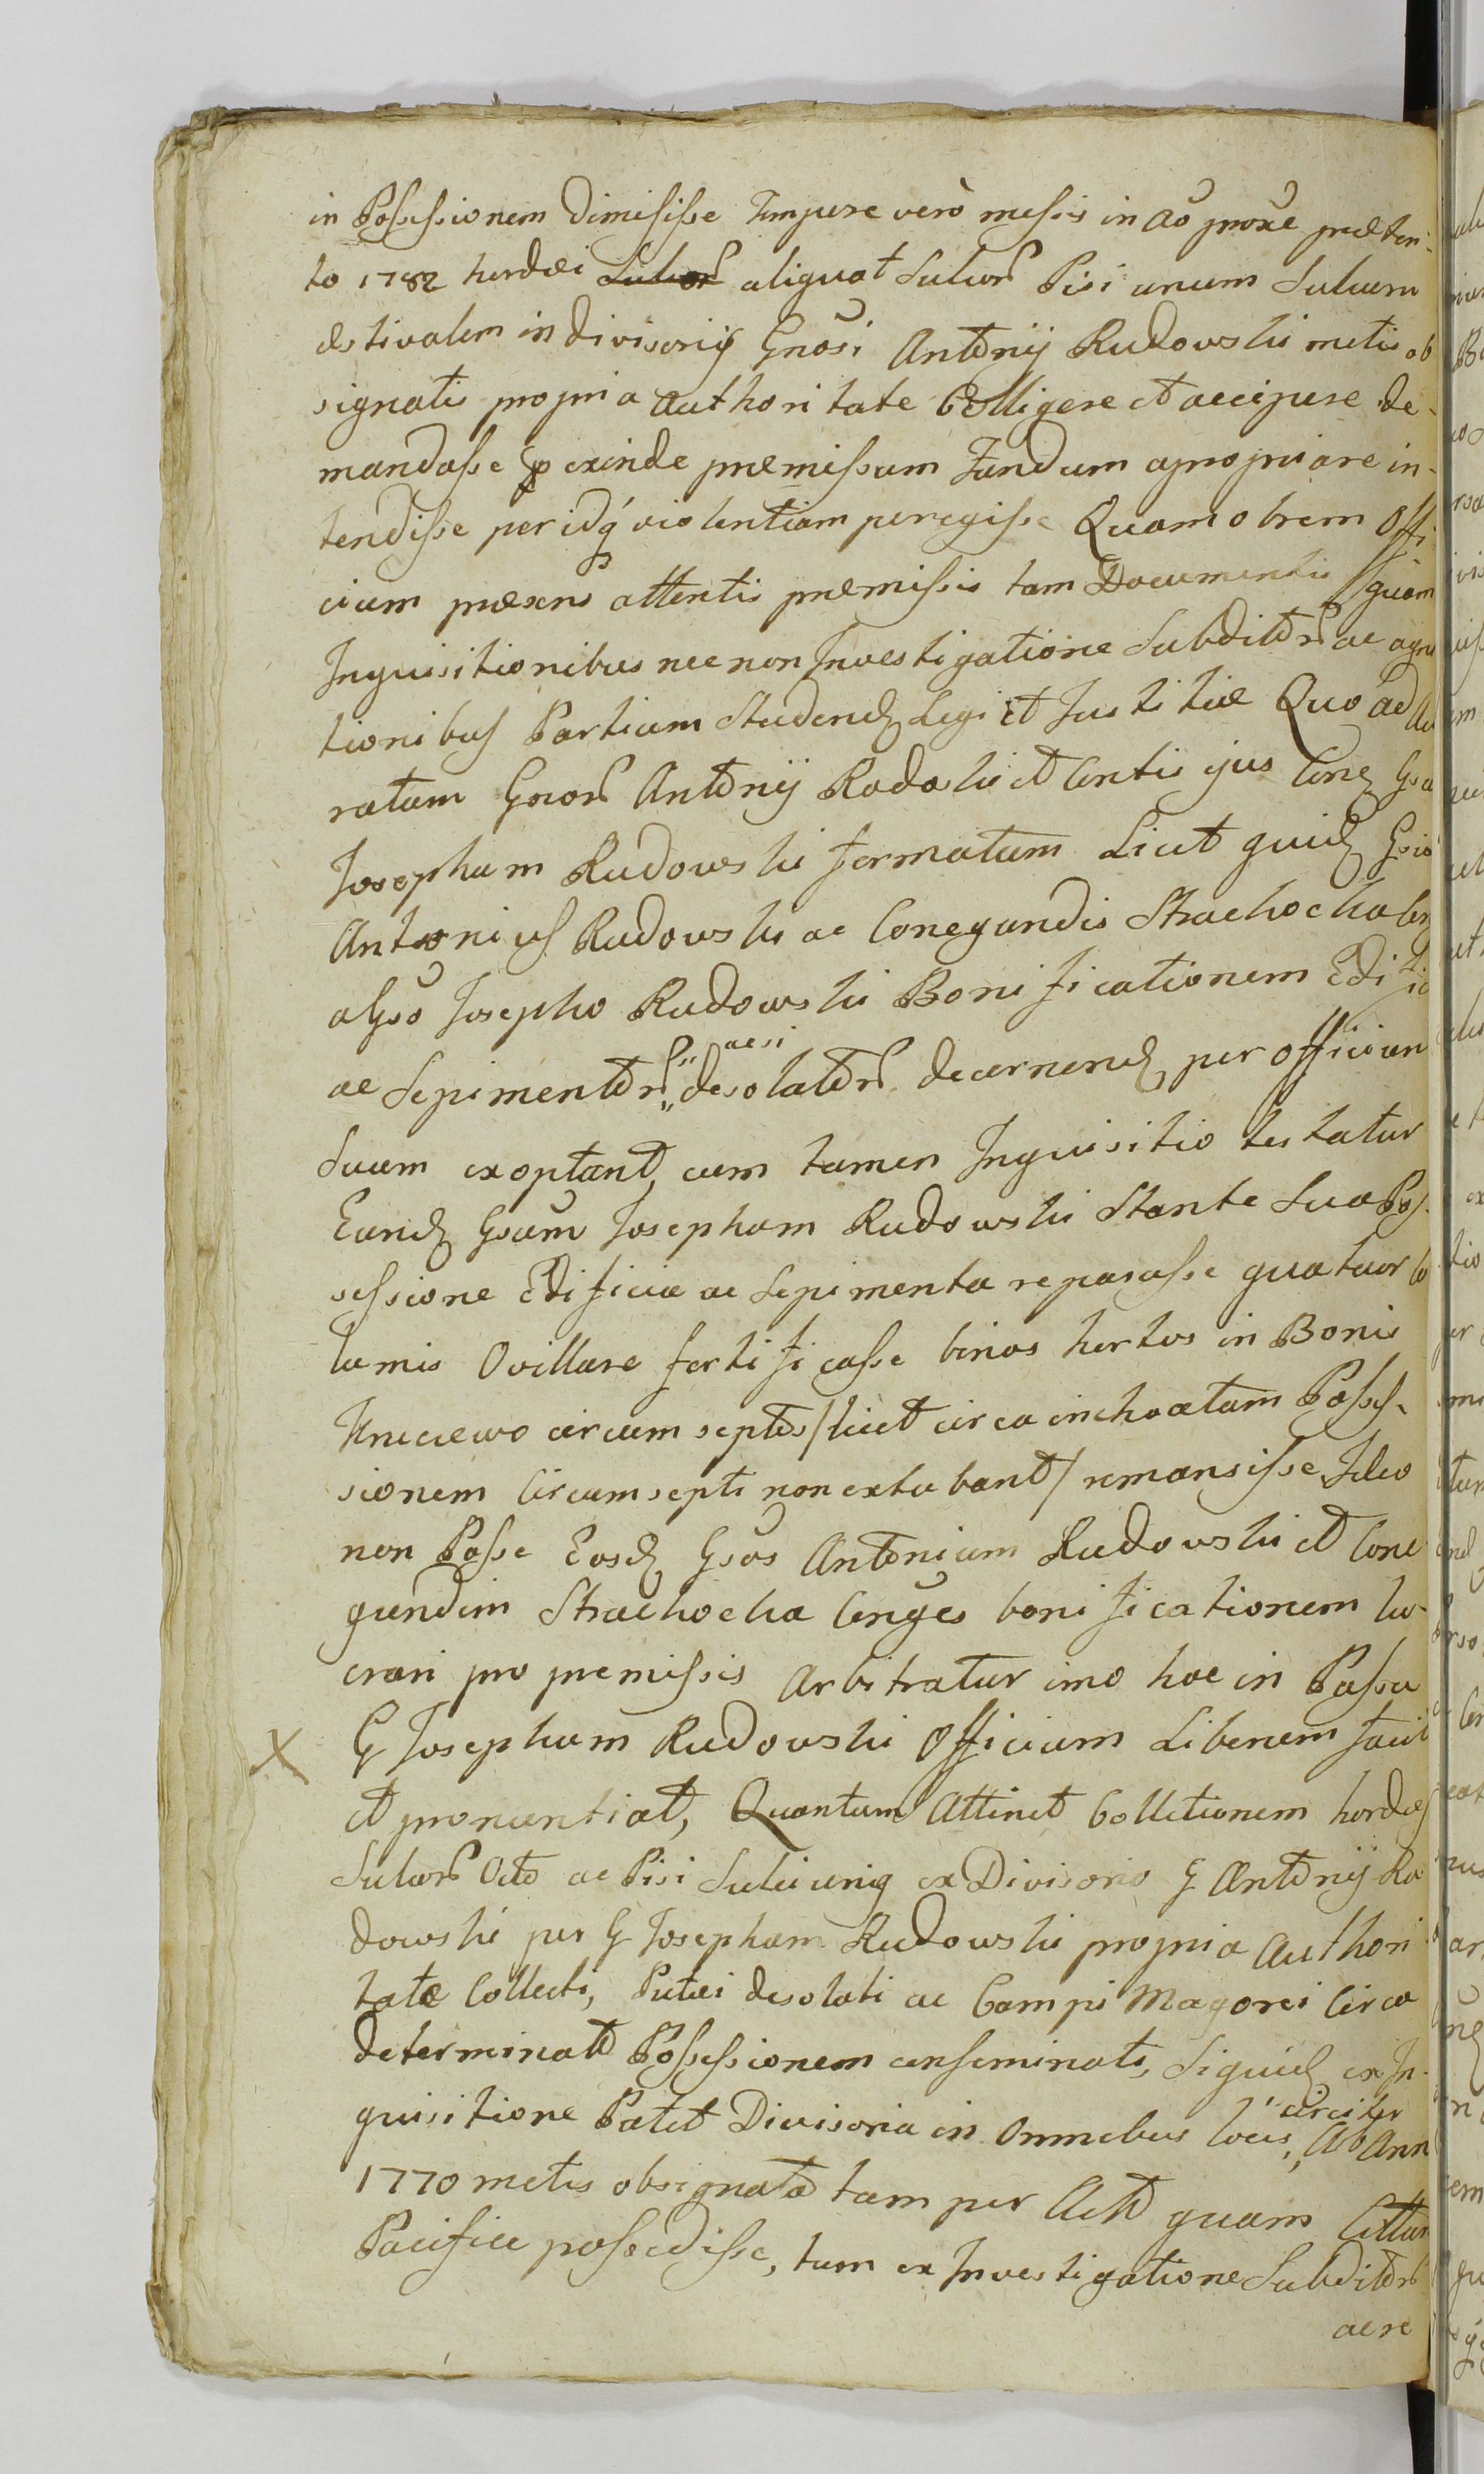 in Possessionem Dimisisse Tempore verò messis in Aō proxe præteri-
to 1782 hordei Sulcor aliquot Sulcor Pisi unum Sulcum
æstivalem in divisorijs Gnōsi Antonij Rudowski metis ob
signatis propria Authoritate Colligere et accipere de-
mandasse & exinde præmissum Fundum apropriare in-
tendisse per idq violentiam peregisse Quamobrem Offi
cium præsens attentis præmissis tam Documentis quam
Inquisitionibus nec non Investigatione Subditor ac
tionibus Partium Studend Legi et Justitiæ Quo ad
ratam Gnor Antonij Rudowski et Contis ejus
Josephum Rudowski formatam Licet quid
Antonius Rudowski ac Conegundis Strachocka
a Gso Josepho Rudowski Bonificationem
ac Sepimentor acsi desolator decernend per Officium
Suum exoptant, cum tamen Inquisitio testatur
Eund Gsum Josephum Rudowski Stante Sua Pos-
sessione Edificia ac Sepimenta reparasse quatuor
lumis Ovillare fortificasse binos hortos in Bonis
Kniciewo circum septos / licet circa inchoatam Posses-
sionem Circumsepti non extabant / remansisse, Ideo
non Posse Eosd Gsos Antonium Rudowski et Cone
gundim Strachocka Conges bonificationem lu-
crari pro premissis Arbitratur imo hoc in Passu
X G Josephum Rudowski Officium Liberum facit
et pronuntiat, Quantum Attinet Colletionem hordei
Sulcor Octo ac Pisi Sulci uniq ex Divisorio G Antonij Ru
dowski per G Josephum Rudowski propria Authori
tate Collecti, Putei desolati ac Campi Magorei Circa
determinatam Possessionem conseminati, Siquid ex In-
quisitione Patet Divisoria in Omnibus locis, circiter Ab Ann
1770 metis obsignata tam per Act quam
Pacifice possedisse, tum ex Investigatione Subditor
ac re